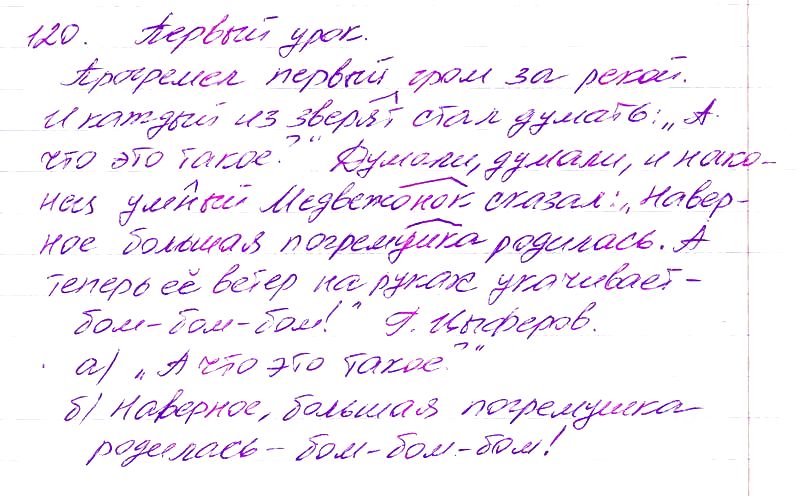 120. Первый урок.
Прогремел первый гром за рекой.
И каждый из зверят стал думать: „А
что это такое?“ Думали, думали, и нако-
нец умный Медвежонок сказал: „Навер-
ное большая погремушка родилась. А
теперь её ветер на руках укачивает –
бом-бом-бом!“ Г. Цыферов.
а) „А что это такое?“
б) Наверное, большая погремушка
родилась – бом-бом-бом!